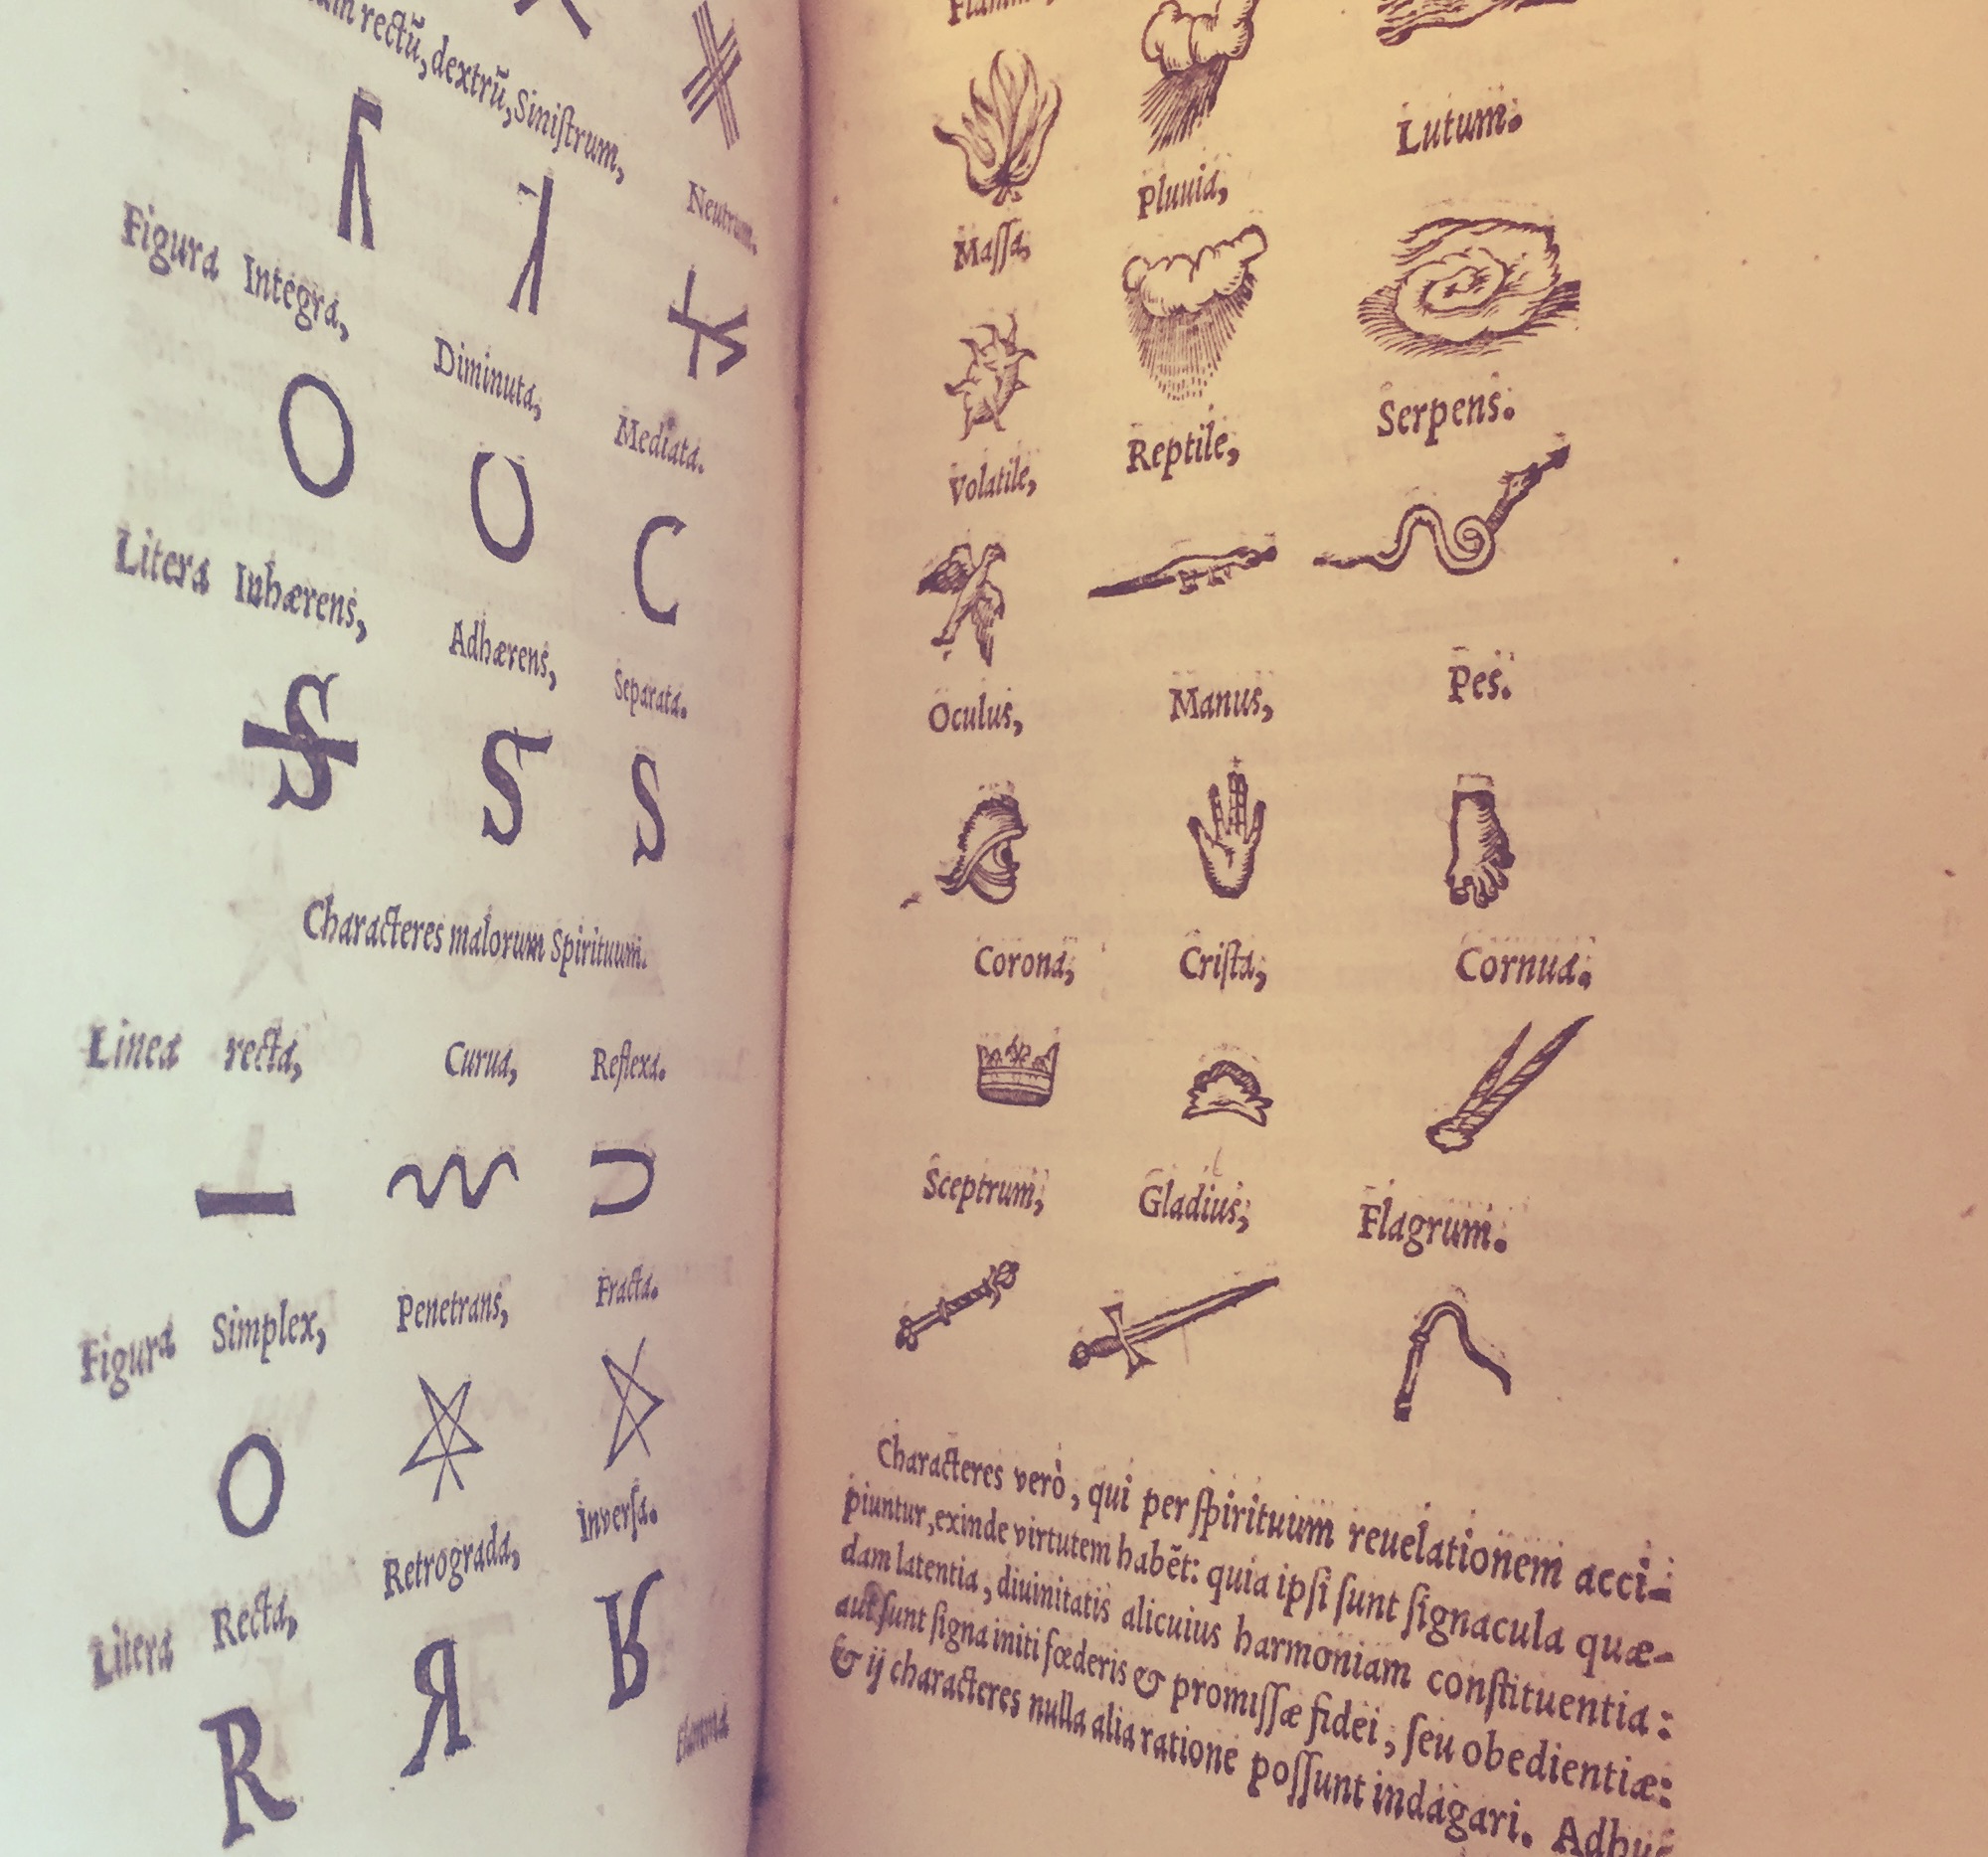 rectū, dextrū, Siniſtrum, Neutrum.
Figura Integra, Diminuta, Mediata.
Litera Inhærens, Adhærens, Separata.
S S S
Characteres malorum Spirituum.
Linea recta, Curua, Reflexa.
Figura Simplex, Penetrans, Fracta.
Litera Recta, Retrograda, Inverſa.
R R R
Flamma
Maſſa, Pluuia, Lutum.
Volatile, Reptile, Serpens.
Oculus, Manus, Pes.
Corona, Criſta, Cornua.
Sceptrum, Gladius, Flagrum.
Characteres verò, qui per ſpirituum reuelationem acci-
piuntur, exinde virtutem habēt: quia ipſi ſunt ſignacula quæ-
dam latentia, diuinitatis alicuius harmoniam conſtituentia:
aut ſunt ſigna initi fœderis & promiſſæ fidei, ſeu obedientiæ:
& ij characteres nulla alia ratione poſſunt indagari. Adhuc